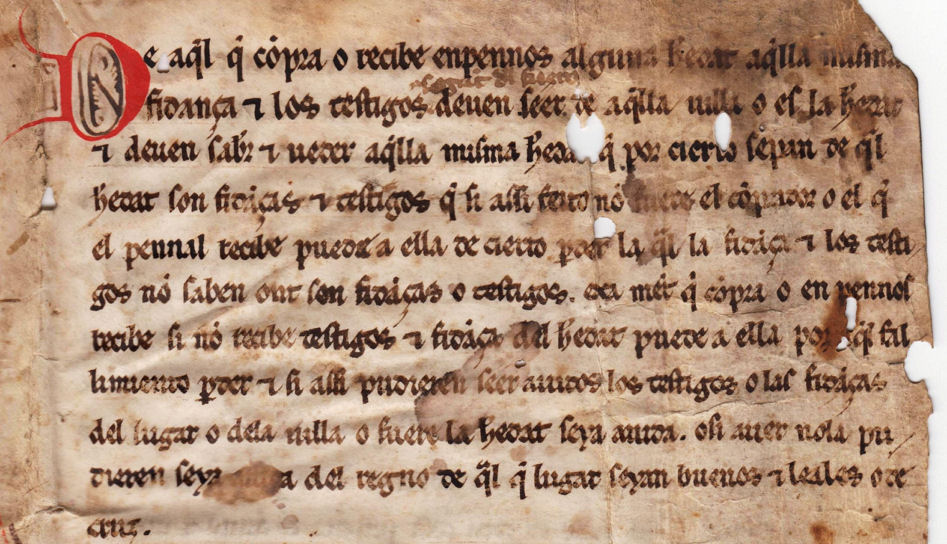 De aq̃l q̃ cõpra o recibe enpennos alguna hedat aq̃lla misma
segunt el fuero
fidança ⁊ los testigos deuen seer de aq̃lla uilla o es la hedat
⁊ deuen sab̃r ⁊ ueder aq̃lla misma hedat q̃ por cierto sepan de q̃l
hedat son fidãças ⁊ testigos q̃ si assi esto nõ fuere el cõprador o el q̃
el pennal recibe puede a ella de cierto p̱der la q̃l la fidãça ⁊ los testi
gos nõ saben ont son fidãças o testigos. q̃ cõpra o en pennos
recibe si nõ recibe testigos ⁊ fidãça del hedat puede a ella por aq̃l fal
limiento p̱der ⁊ si assi pudieren seer auidos los testigos o las fidãças
del lugar o dela uilla o fuere la hedat seya auida. o si auer nola pu
dieren seya del regno de q̃l q̃ lugar seyan buenos ⁊ leales o de